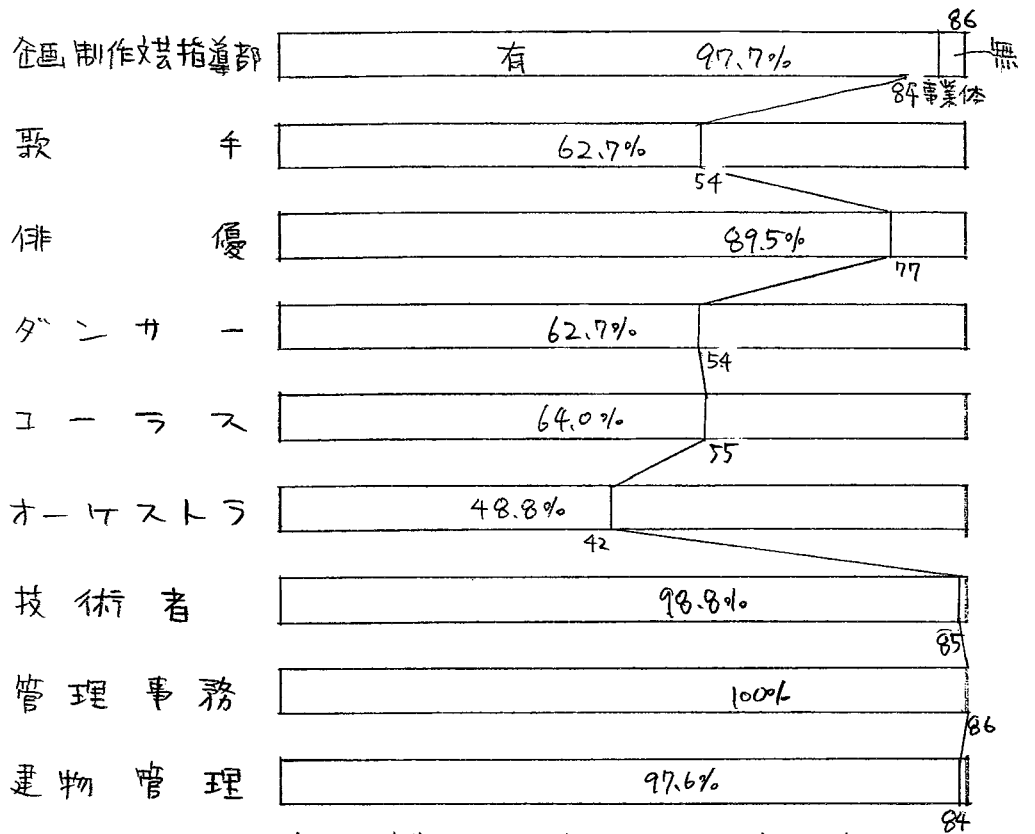 86
企画制作文芸指導部 有 97.7% 無
84事業体
歌手 62.7%
54
俳優 89.5%
77
ダンサー 62.7%
54
コーラス 64.0%
55
オーケストラ 48.8%
42
技術者 98.8%
85
管理事務 100%
86
建物管理 97.6%
84